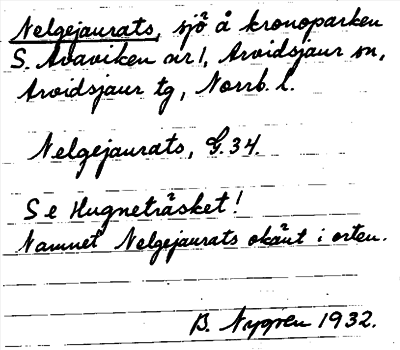 Nelgejaurats, sjö å kronoparken
S. Avaviken nr 1, Arvidsjaur sn,
Arvidsjaur tg, Norrb. l.
Nelgejaurats, G. 34.
Se Hugneträsket!
Namnet Nelgejaurats okänt i orten.
B. Nygren 1932.